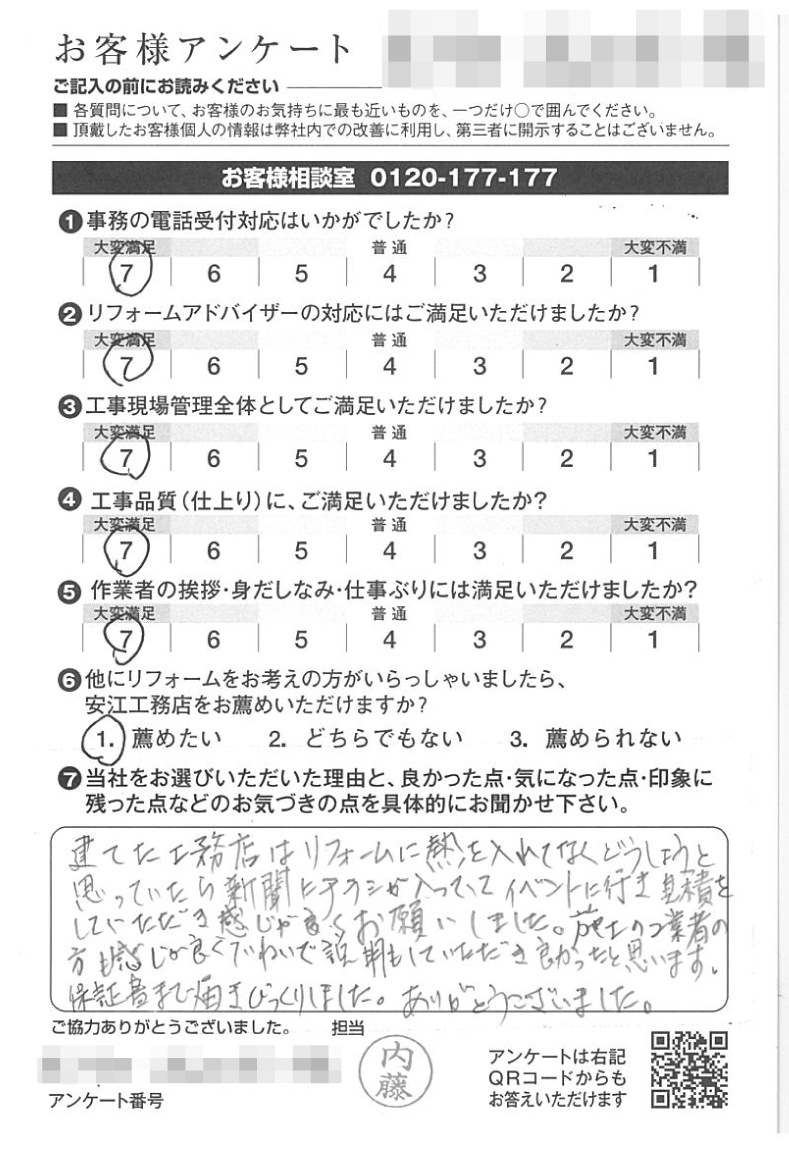 お客様アンケート
ご記入の前にお読みください
■ 各質問について、お客様のお気持ちに最も近いものを、一つだけ○で囲んでください。
■ 頂戴したお客様個人の情報は弊社内での改善に利用し、第三者に開示することはございません。
お客様相談室 0120-177-177
❶事務の電話受付対応はいかがでしたか?
大変満足 普通 大変不満
7 6 5 4 3 2 1
❷リフォームアドバイザーの対応にはご満足いただけましたか?
大変満足 普通 大変不満
7 6 5 4 3 2 1
❸工事現場管理全体としてご満足いただけましたか?
大変満足 普通 大変不満
7 6 5 4 3 2 1
❹工事品質(仕上り)に、ご満足いただけましたか?
大変満足 普通 大変不満
7 6 5 4 3 2 1
❺作業者の挨拶・身だしなみ・仕事ぶりには満足いただけましたか?
大変満足 普通 大変不満
7 6 5 4 3 2 1
❻他にリフォームをお考えの方がいらっしゃいましたら、
安江工務店をお薦めいただけますか?
1. 薦めたい 2. どちらでもない 3. 薦められない
❼当社をお選びいただいた理由と、良かった点・気になった点・印象に
残った点などのお気づきの点を具体的にお聞かせ下さい。
建てた工務店はリフォームに熱を入れてなくどうしようと
思っていたら新聞にチラシが入っていてイベントに行き見積を
していただき感じが良くお願いしました。の業者の
方も感じが良くていねいで説明もしていただき良かったと思います。
保証書まで届きびっくりしました。ありがとうございました。
ご協力ありがとうございました。 担当
内藤
アンケート番号
アンケートは右記
QRコードからも
お答えいただけます